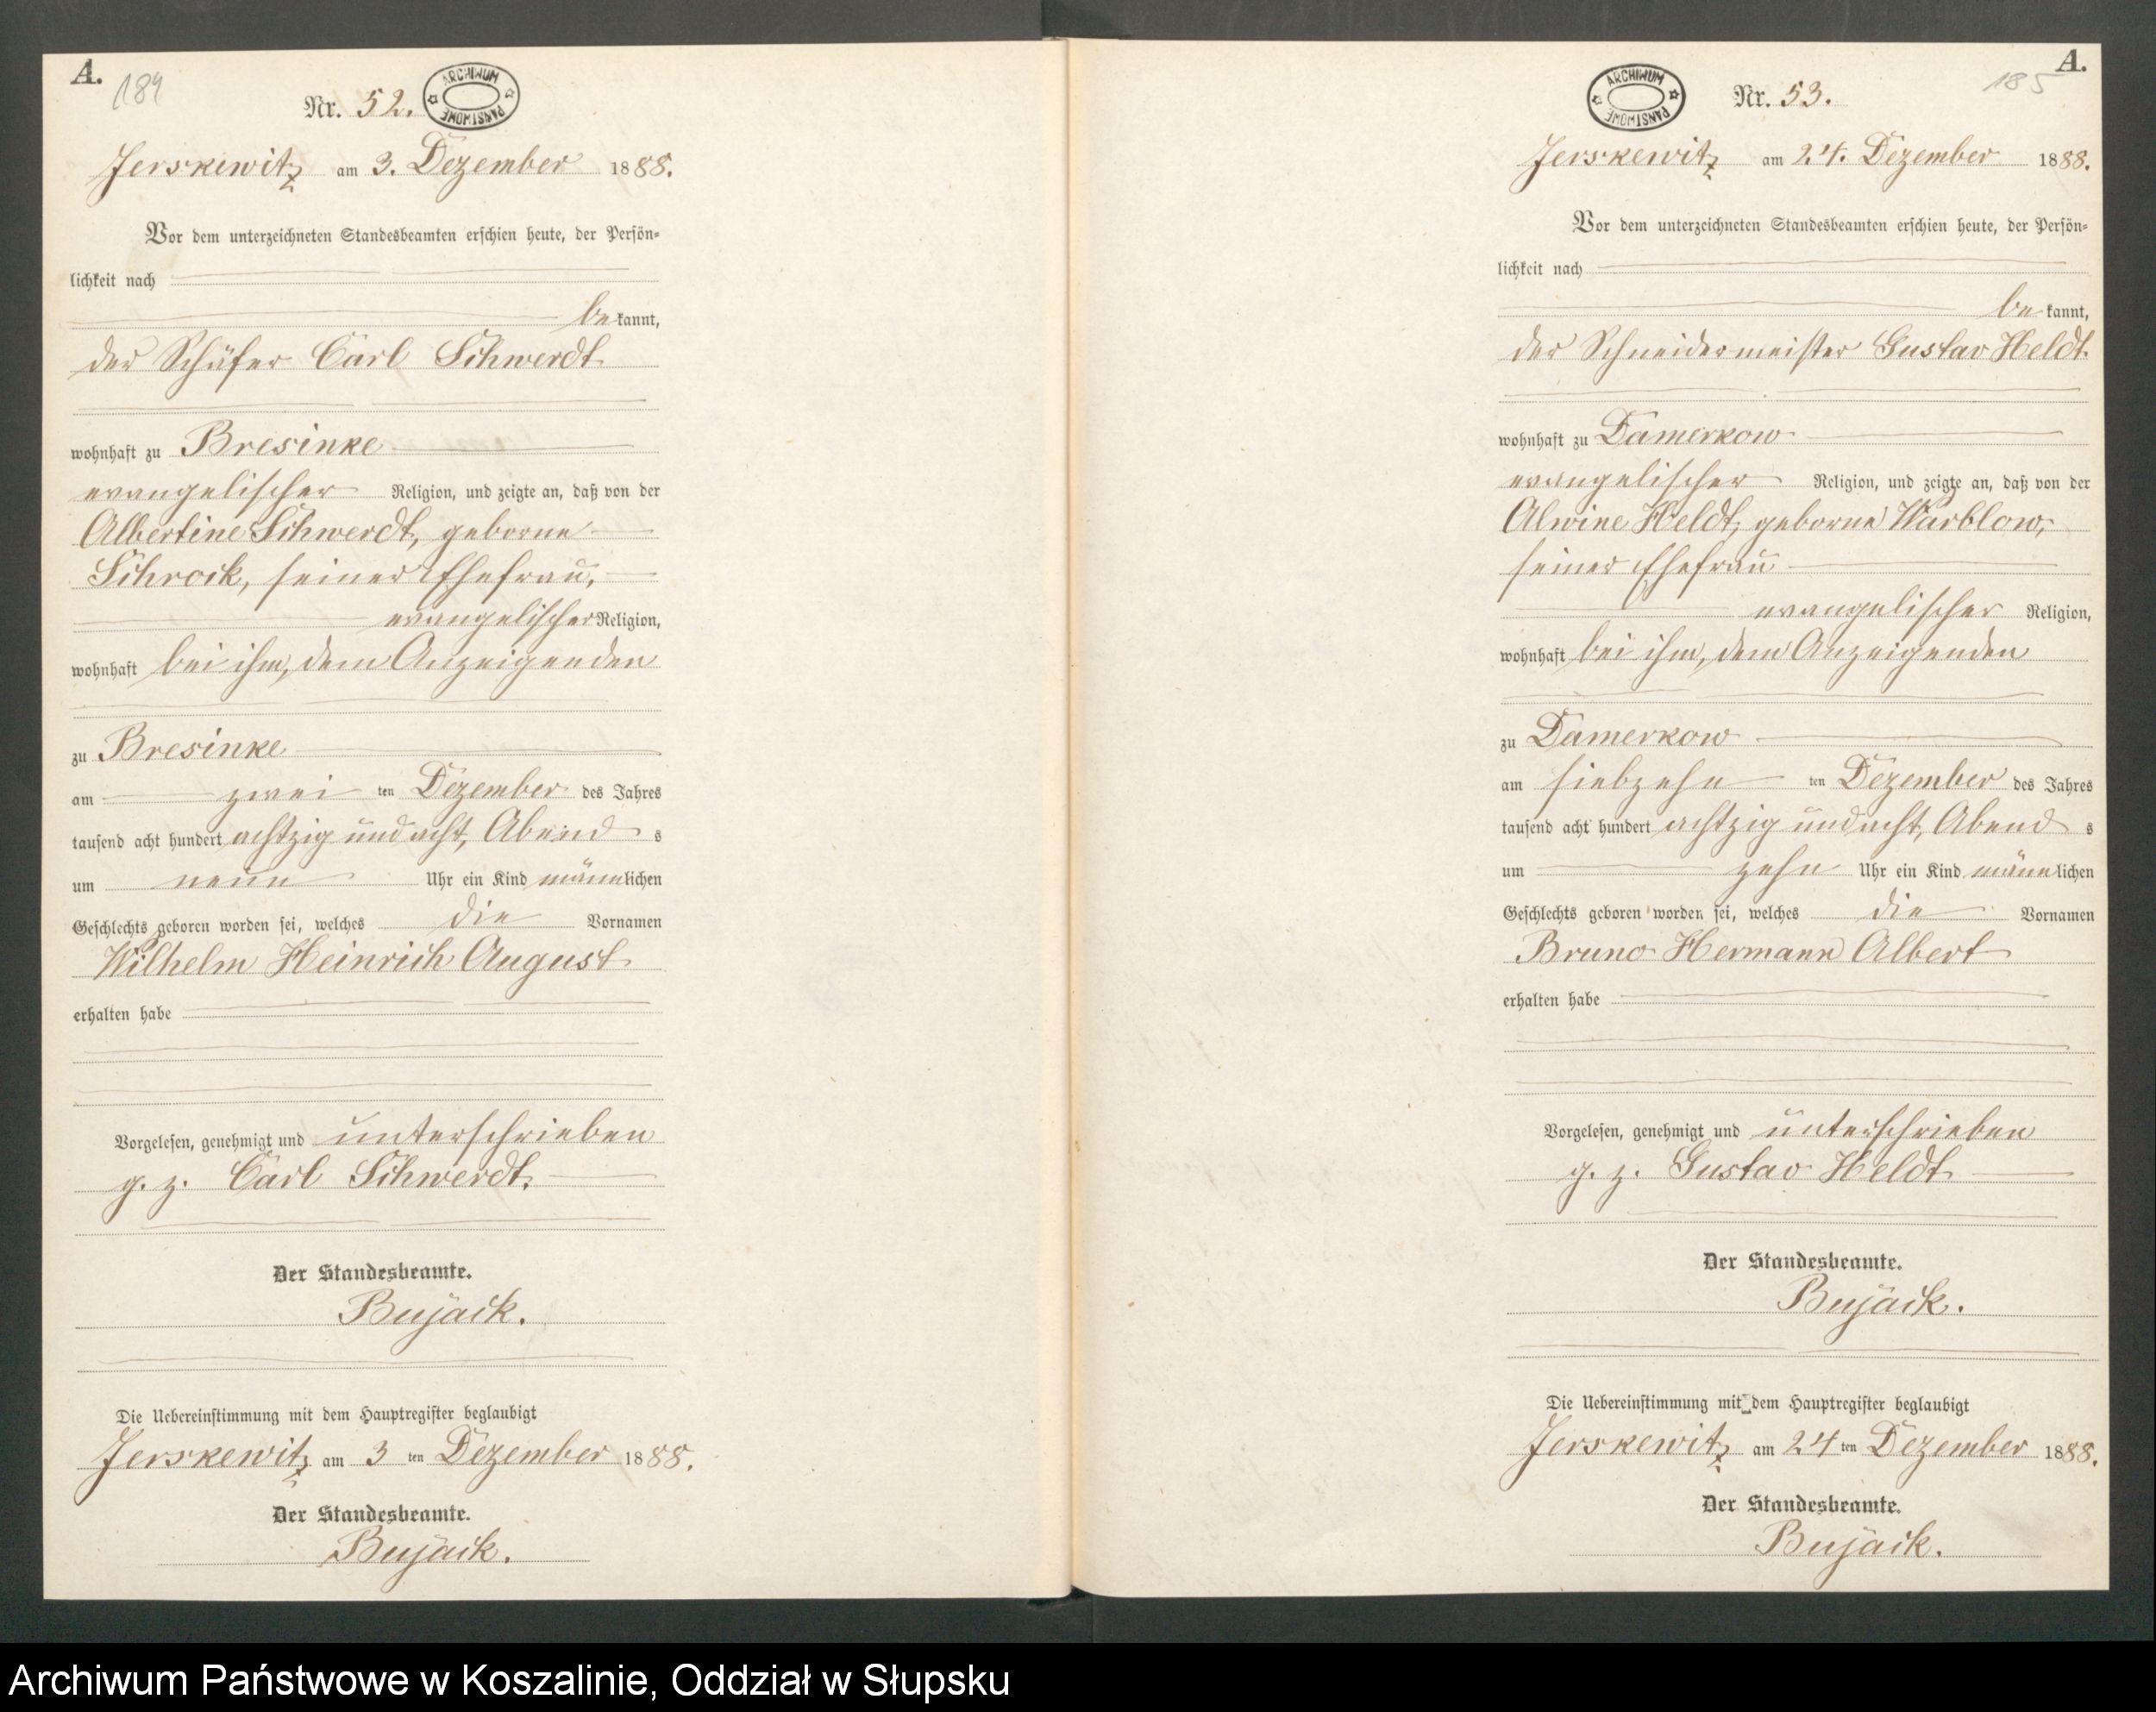 A.
184
Nr. 52.
ARCHIWUM PAŃSTWOWE
Jerskewitz am 3. Dezember 1888.
Vor dem unterzeichneten Standesbeamten erschien heute, der Persön-
lichkeit nach
bekannt,
der Schäfer Carl Schwerdt
wohnhaft zu Bresinke
evangelischer Religion, und zeigte an, daß von der
Albertine Schwerdt, geborne
Schrock, seiner Ehefrau,
evangelischer Religion,
wohnhaft bei ihm, dem Anzeigenden
zu Bresinke
am zwei ten Dezember des Jahres
tausend acht hundert achtzig und acht, Abend s
um neun Uhr ein Kind männlichen
Geschlechts geboren worden sei, welches die Vornamen
Wilhelm Heinrich August
erhalten habe
Vorgelesen, genehmigt und unterschrieben
g. z. Carl Schwerdt.
Der Standesbeamte.
Bujack.
Die Uebereinstimmung mit dem Hauptregister beglaubigt
Jerskewitz am 3 ten Dezember 1888.
Der Standesbeamte.
Bujack.
A.
185
ARCHIWUM PAŃSTWOWE
Nr. 53.
Jerskewitz am 24. Dezember 1888.
Vor dem unterzeichneten Standesbeamten erschien heute, der Persön-
lichkeit nach
bekannt,
der Schneidermeister Gustav Heldt.
wohnhaft zu Damerkow
evangelischer Religion, und zeigte an, daß von der
Alwine Heldt, geborne Warblow,
seiner Ehefrau
evangelischer Religion,
wohnhaft bei ihm, dem Anzeigenden
zu Damerkow
am siebzehn ten Dezember des Jahres
tausend acht hundert achtzig und acht, Abend s
um zehn Uhr ein Kind männlichen
Geschlechts geboren worden sei, welches die Vornamen
Bruno Hermann Albert
erhalten habe
Vorgelesen, genehmigt und unterschrieben
g. z. Gustav Heldt
Der Standesbeamte.
Bujack.
Die Uebereinstimmung mit dem Hauptregister beglaubigt
Jerskewitz am 24 ten Dezember 1888.
Der Standesbeamte.
Bujack.
Archiwum Państwowe w Koszalinie, Oddział w Słupsku